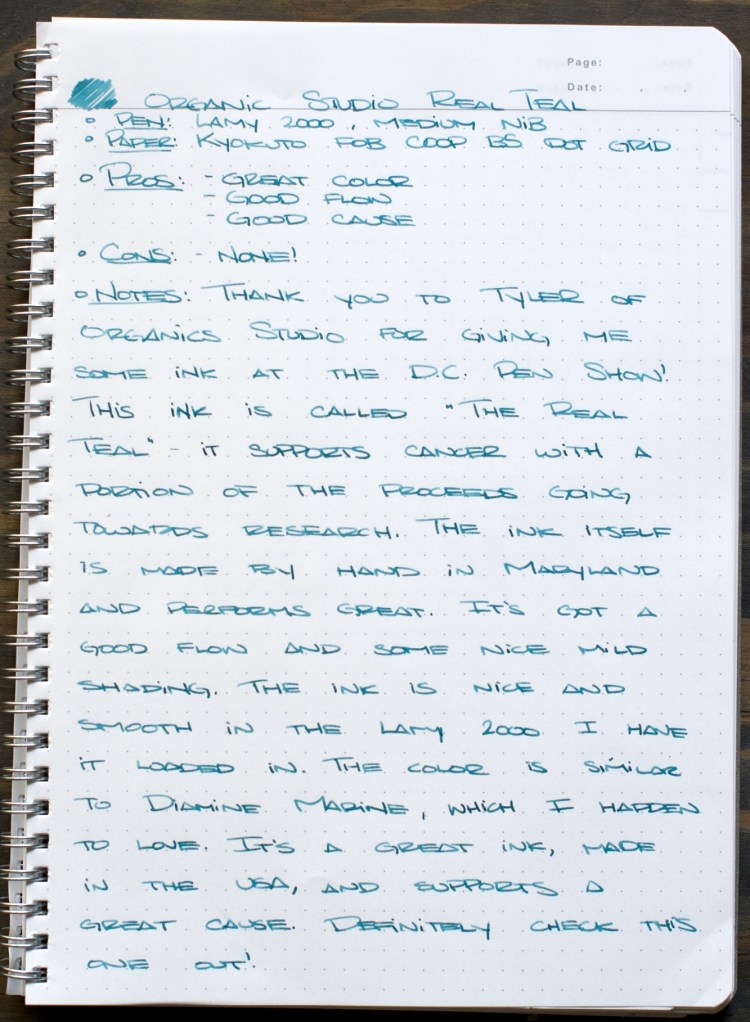 Page:
Date:
Organic Studio Real Teal
• Pen: Lamy 2000, Medium Nib
• Paper: Kyokuto FOB COOP B5 Dot Grid
• Pros: - Great color
- Good flow
- Good cause
• Cons: - None!
• Notes: Thank you to Tyler of
Organics Studio for giving me
some ink at the D.C. Pen Show!
This ink is called "The Real
Teal" - it supports cancer with a
portion of the proceeds going
towards research. The ink itself
is made by hand in Maryland
and performs great. It's got a
good flow and some nice mild
shading. The ink is nice and
smooth in the Lamy 2000 I have
it loaded in. The color is similar
to Diamine Marine, which I happen
to love. It's a great ink, made
in the USA, and supports a
great cause. Definitely check this
one out!